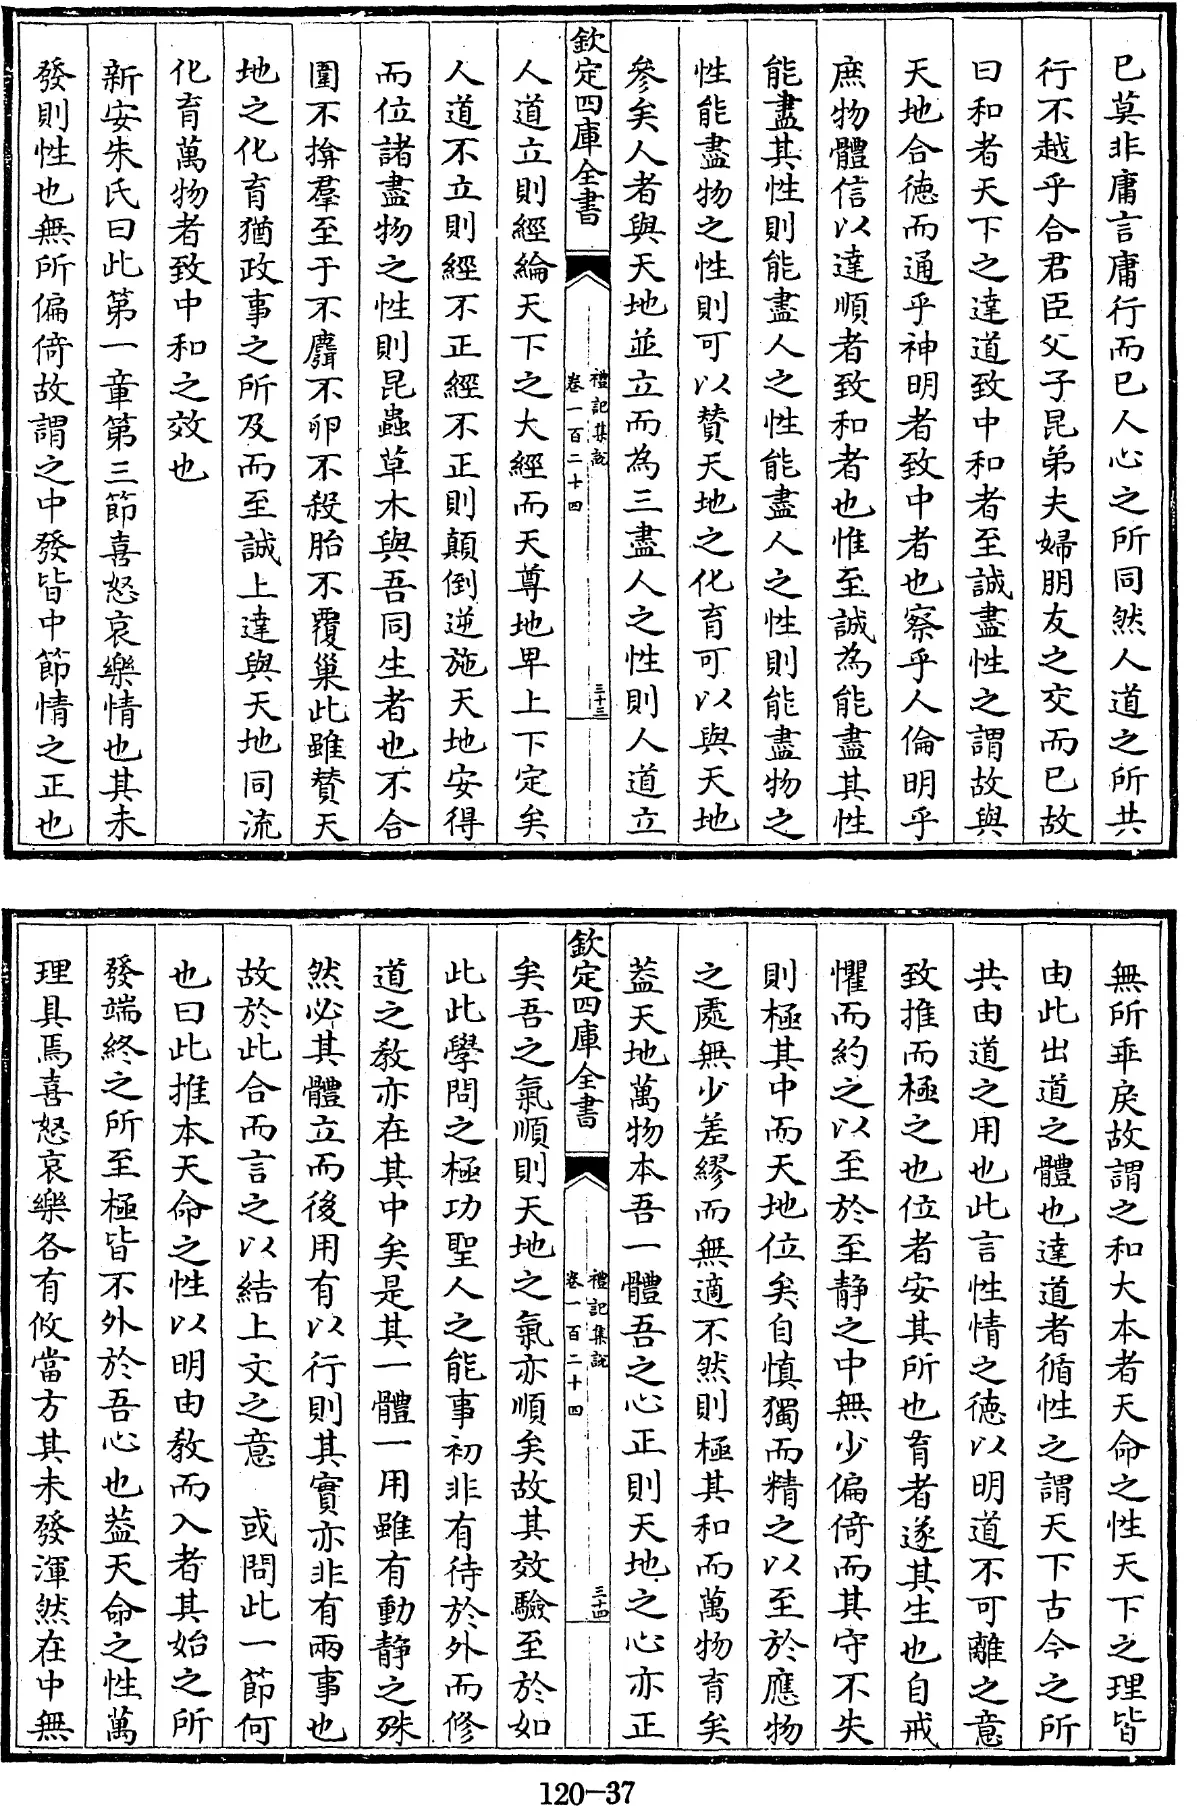 已莫非庸言庸行而已人心之所同然人道之所共
行不越乎合君臣父子昆弟夫婦朋友之交而已故
曰和者天下之達道致中和者至誠盡性之謂故與
天地合徳而通乎神明者致中者也察乎人倫明乎
庶物體信以達順者致和者也惟至誠為能盡其性
能盡其性則能盡人之性能盡人之性則能盡物之
性能盡物之性則可以賛天地之化育可以與天地
參矣人者與天地並立而為三盡人之性則人道立
欽定四庫全書
禮記集説
卷一百二十四
三十三
人道立則經綸天下之大經而天尊地卑上下定矣
人道不立則經不正經不正則顛倒逆施天地安得
而位諸盡物之性則昆蟲草木與吾同生者也不合
圍不揜羣至于不麛不卵不殺胎不覆巢此雖賛天
地之化育猶政事之所及而至誠上達與天地同流
化育萬物者致中和之效也
新安朱氏曰此第一章第三節喜怒哀樂情也其未
發則性也無所偏倚故謂之中發皆中節情之正也
無所乖戾故謂之和大本者天命之性天下之理皆
由此出道之體也達道者循性之謂天下古今之所
共由道之用也此言性情之徳以明道不可離之意
致推而極之也位者安其所也育者遂其生也自戒
懼而約之以至於至静之中無少偏倚而其守不失
則極其中而天地位矣自慎獨而精之以至於應物
之處無少差繆而無適不然則極其和而萬物育矣
葢天地萬物本吾一體吾之心正則天地之心亦正
欽定四庫全書
禮記集説
卷一百二十四
三十四
矣吾之氣順則天地之氣亦順矣故其效驗至於如
此此學問之極功聖人之能事初非有待於外而修
道之敎亦在其中矣是其一體一用雖有動静之殊
然必其體立而後用有以行則其實亦非有兩事也
故於此合而言之以結上文之意 或問此一節何
也曰此推本天命之性以明由敎而入者其始之所
發端終之所至極皆不外於吾心也葢天命之性萬
理具焉喜怒哀樂各有攸當方其未發渾然在中無
120-37